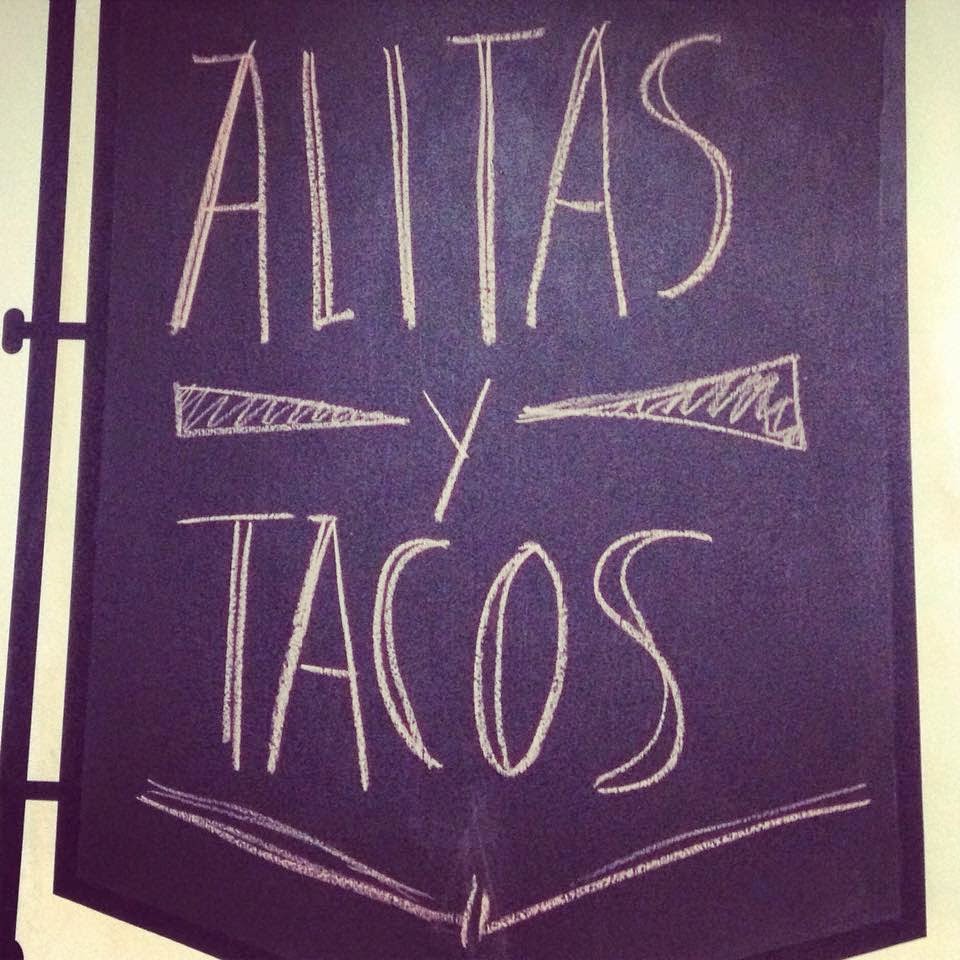 ALITAS
Y
TACOS